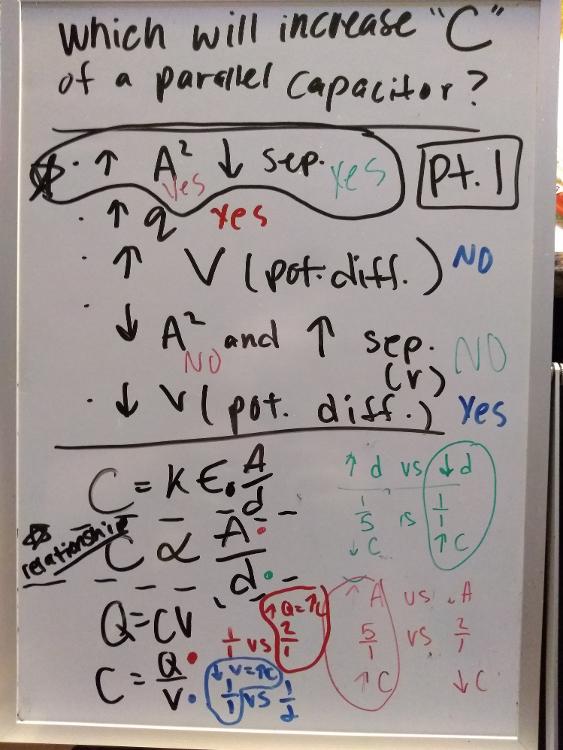 Which will increase "C"
of a parallel capacitor?
· ↑ A² ↓ sep. yes
yes
Pt. 1
· ↑ q yes
· ↑ V (pot. diff.) NO
· ↓ A² and ↑ sep. NO
NO (r)
· ↓ V (pot. diff.) yes
C = K ϵ₀ A/d
relationship
C ∝ A/d
Q = CV
C = Q/V
↑ d vs ↓ d
1/5 is 1/1
↓ C ↑ C
↑ Q = ↑ C
1/1 vs 2/1
↓ V = ↑ C
1/1 vs 1/2
↑ A vs ↓ A
5/1 vs 2/1
↑ C ↓ C